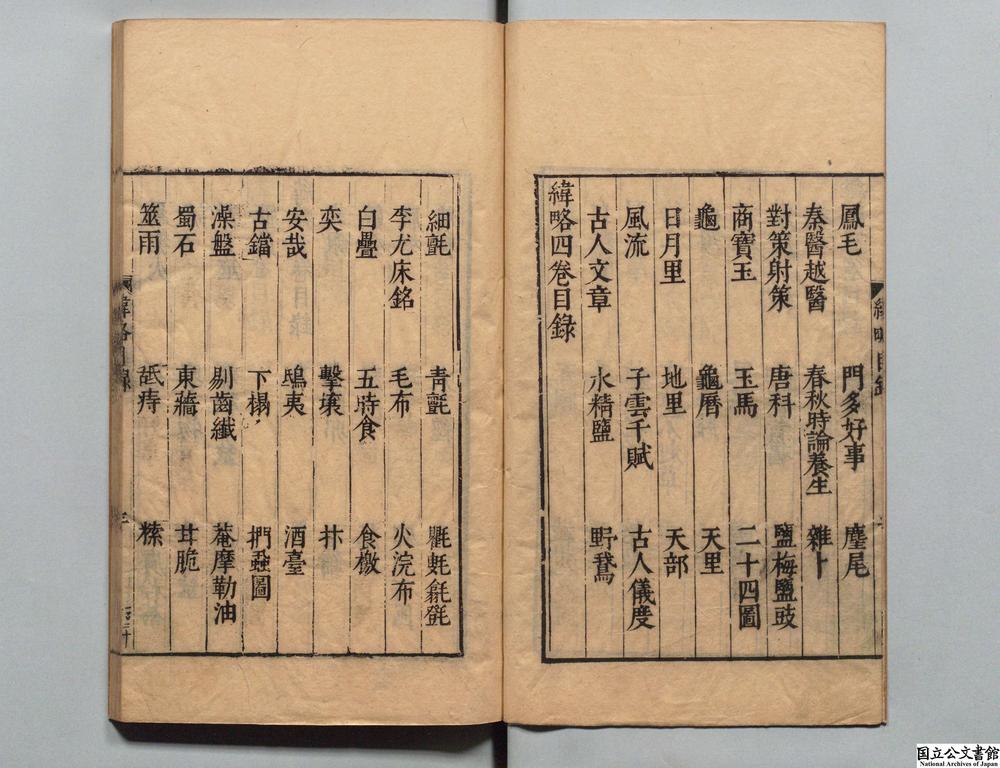 鳳毛 門多好事 麈尾
秦醫越醫 春秋時論養生 雜卜
對策射策 唐科 鹽梅鹽豉
商寶玉 玉馬 二十四圖
龜 龜曆 天里
日月里 地里 天部
風流 子雲千賦 古人儀度
古人文章 水精鹽 野鵞
緯略四卷目錄
細氈 青氈
李尤床銘 毛布 火浣布
白疊 五時食 食檄
奕 擊壤
安哉 鴟夷 酒臺
古鐺 下榻 捫蝨圖
澡盤 剔齒纖 菴摩勒油
蜀石 東蘠 甘脆
筮雨 舐痔
緯略目錄
国立公文書館
National Archives of Japan